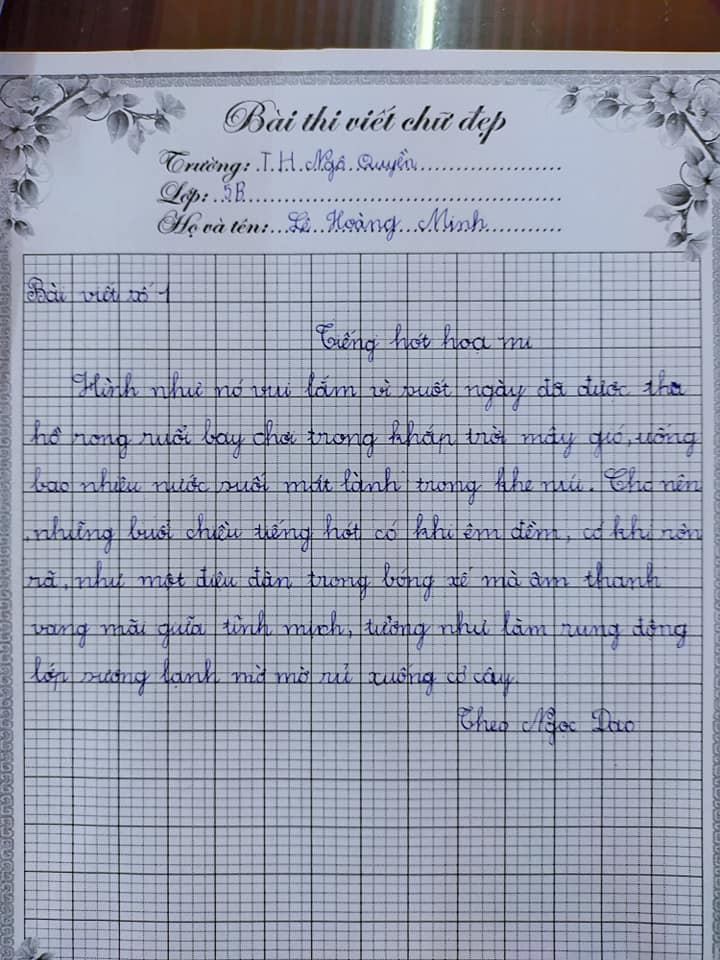 Bài thi viết chữ đẹp
Trường: T.H. Ngô Quyền
Lớp: 5B
Họ và tên: Lê Hoàng Minh
Bài viết số 1
Tiếng hót họa mi
Hình như nó vui lắm vì suốt ngày đã được tha
hồ rong ruổi bay chơi trong khắp trời mây gió, uống
bao nhiêu nước suối mát lành trong khe núi. Cho nên
những buổi chiều tiếng hót có khi êm đềm, có khi rộn
rã, như một điệu đàn trong bóng xế mà âm thanh
vang mãi giữa tĩnh mịch, tưởng như làm rung động
lớp sương lạnh mờ mờ rủ xuống cỏ cây.
Theo Ngọc Dao